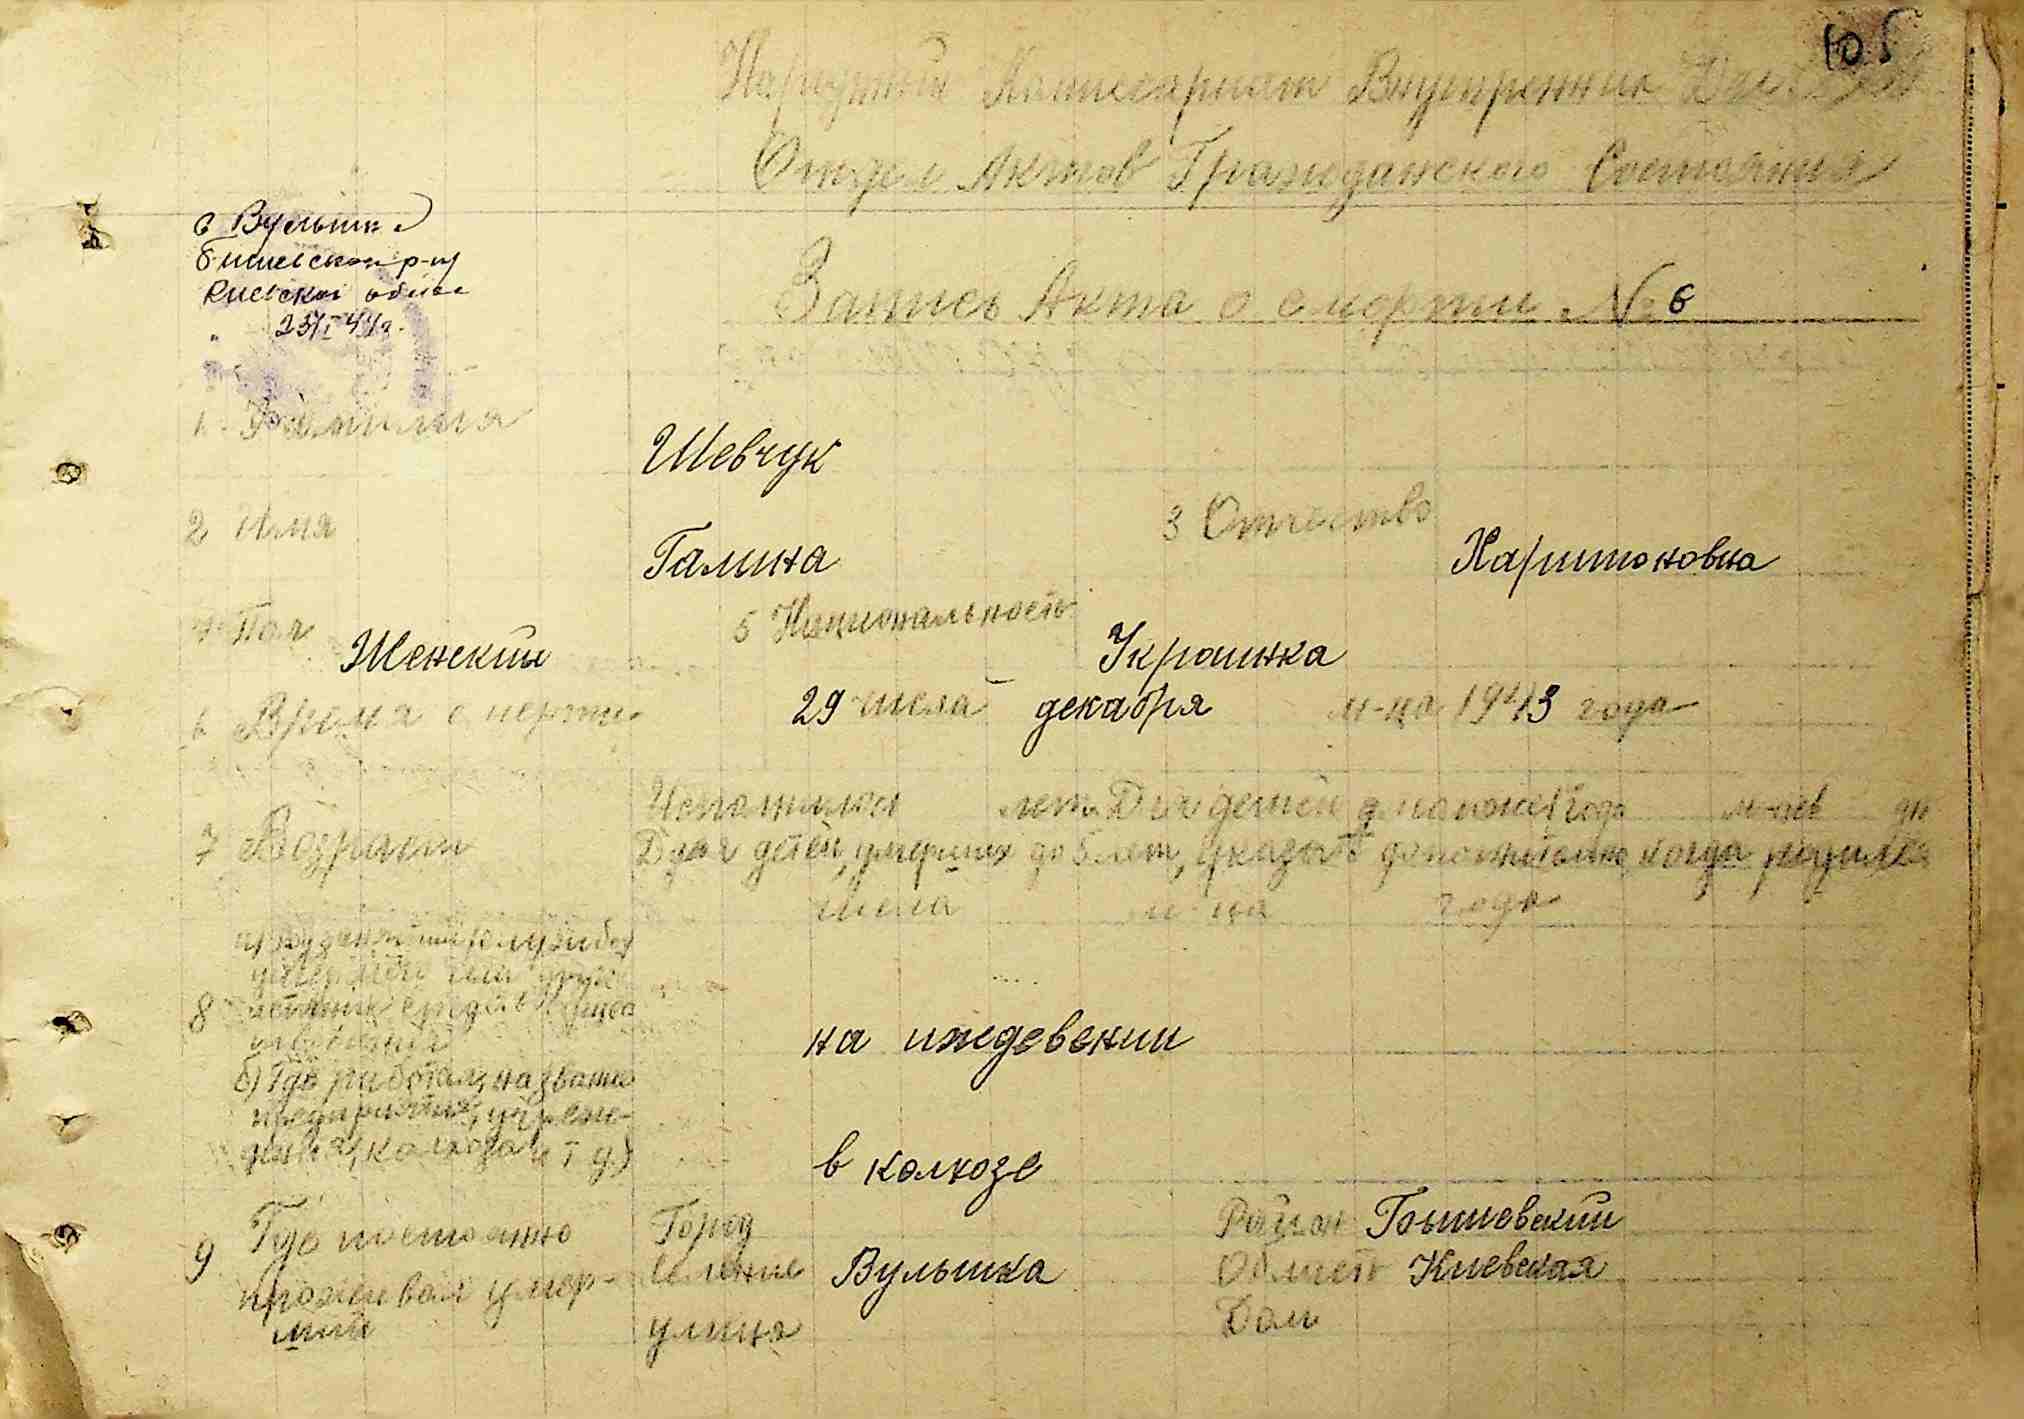 105
Народный Комиссариат Внутренних Дел
Отдел Актов Гражданского Состояния
с Вульшка
р-н
Киевской области
23/I 44 г.
Запись Акта о смерти № 6
1. Фамилия
Шевчук
2 Имя
Галина
3 Отчество
Харитоновна
4 Пол
Женский
5 Национальность
Украинка
6 Время смерти
29 числа декабря м-ца 1943 года
7 Возраст
Исполнилось лет. Для детей до 1 года м-цев дн
Для детей, умерших до 5 лет, указать дополнительно когда родился
числа м-ца года
8
на иждевении
б) Где работал, название
предприятия, учреж-
дения, колхоза и т д)
в колхозе
9 Где постоянно
проживал умер-
ший
Город
Селение Вульшка
улица
Район Бышевский
Область Киевская
Дом